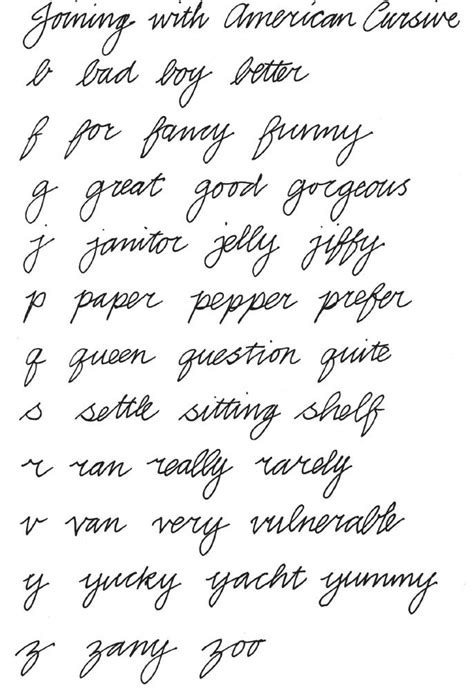 Joining with American Cursive
b bad boy better
f for fancy funny
g great good gorgeous
j janitor jelly jiffy
p paper pepper prefer
q queen question quite
s settle sitting shelf
r ran really rarely
v van very vulnerable
y yucky yacht yummy
z zany zoo